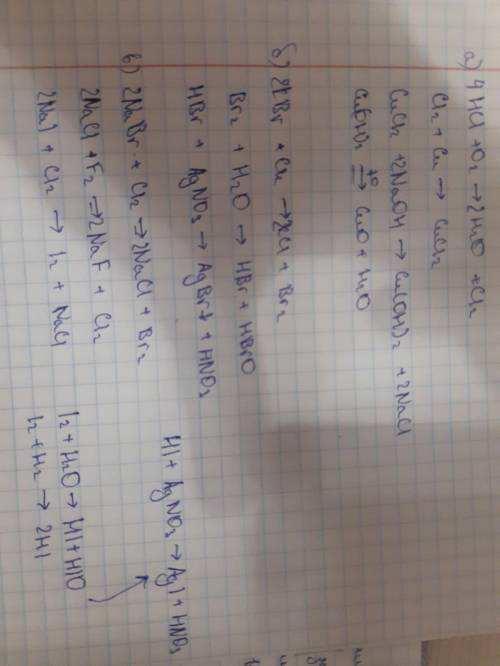 а) 4HCl + O2 → 2H2O + Cl2
Cl2 + Cu → CuCl2
CuCl2 + 2NaOH → Cu(OH)2 + 2NaCl
Cu(OH)2 t°→ CuO + H2O
б) + → + Br2
Br2 + H2O → HBr + HBrO
HBr + AgNO3 → AgBr↓ + HNO3
в) 2NaBr + Cl2 → 2NaCl + Br2
2NaCl + F2 → 2NaF + Cl2
2NaI + Cl2 → I2 + NaCl
HI + AgNO3 → AgI + HNO3
I2 + H2O → HI + HIO
I2 + H2 → 2HI